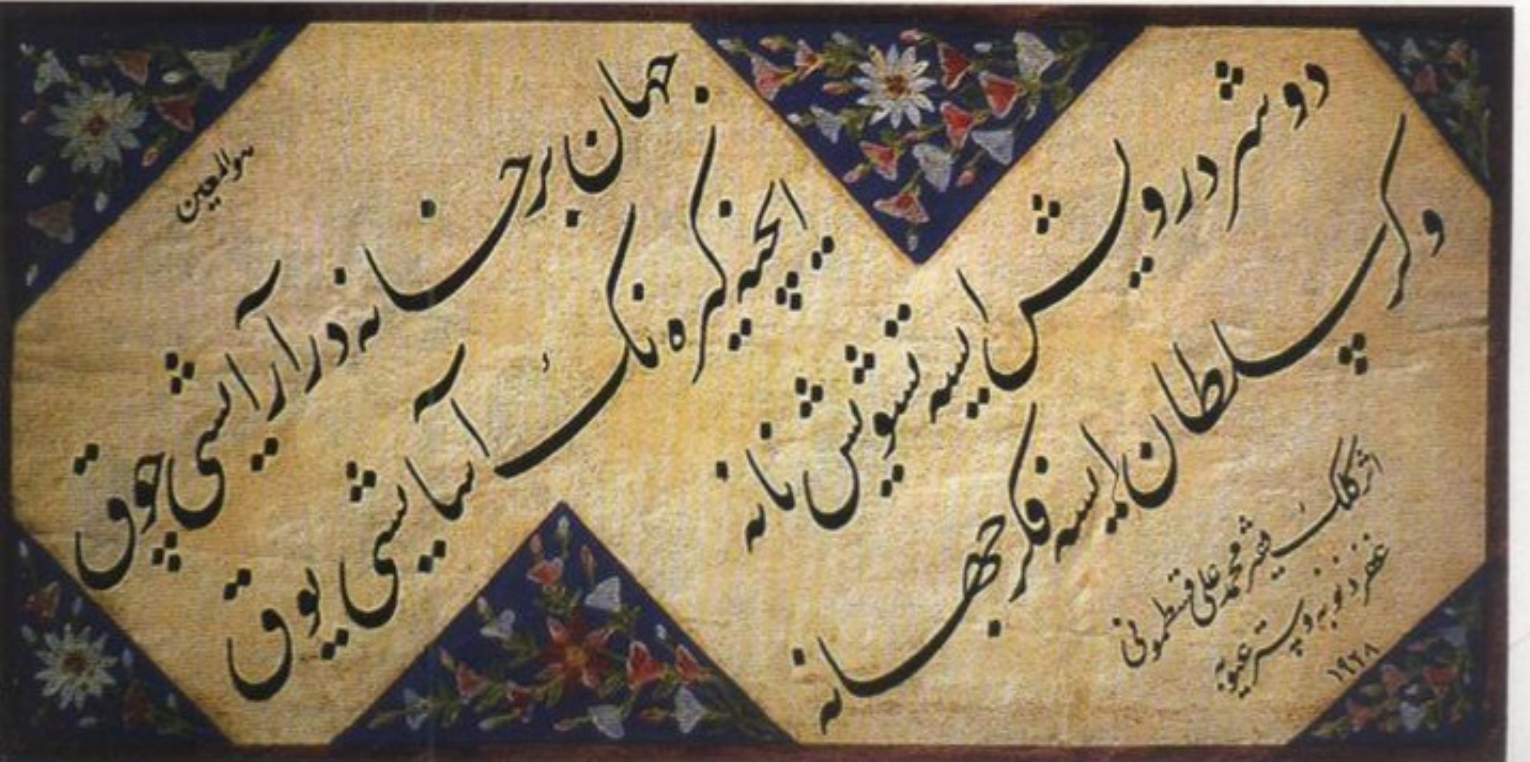 هو المعین
جهان بر خانه در آرایشی چوق
ایچنه کیره نك آسایشی یوق
دوشر درویش ایسه تشویش نانه
وكر سلطان ایسه فكر جهانه
اثر كلك فقیر محمد علی قسطمونی
غفر ذنوبه وستر عیوبه
١٩٢٨